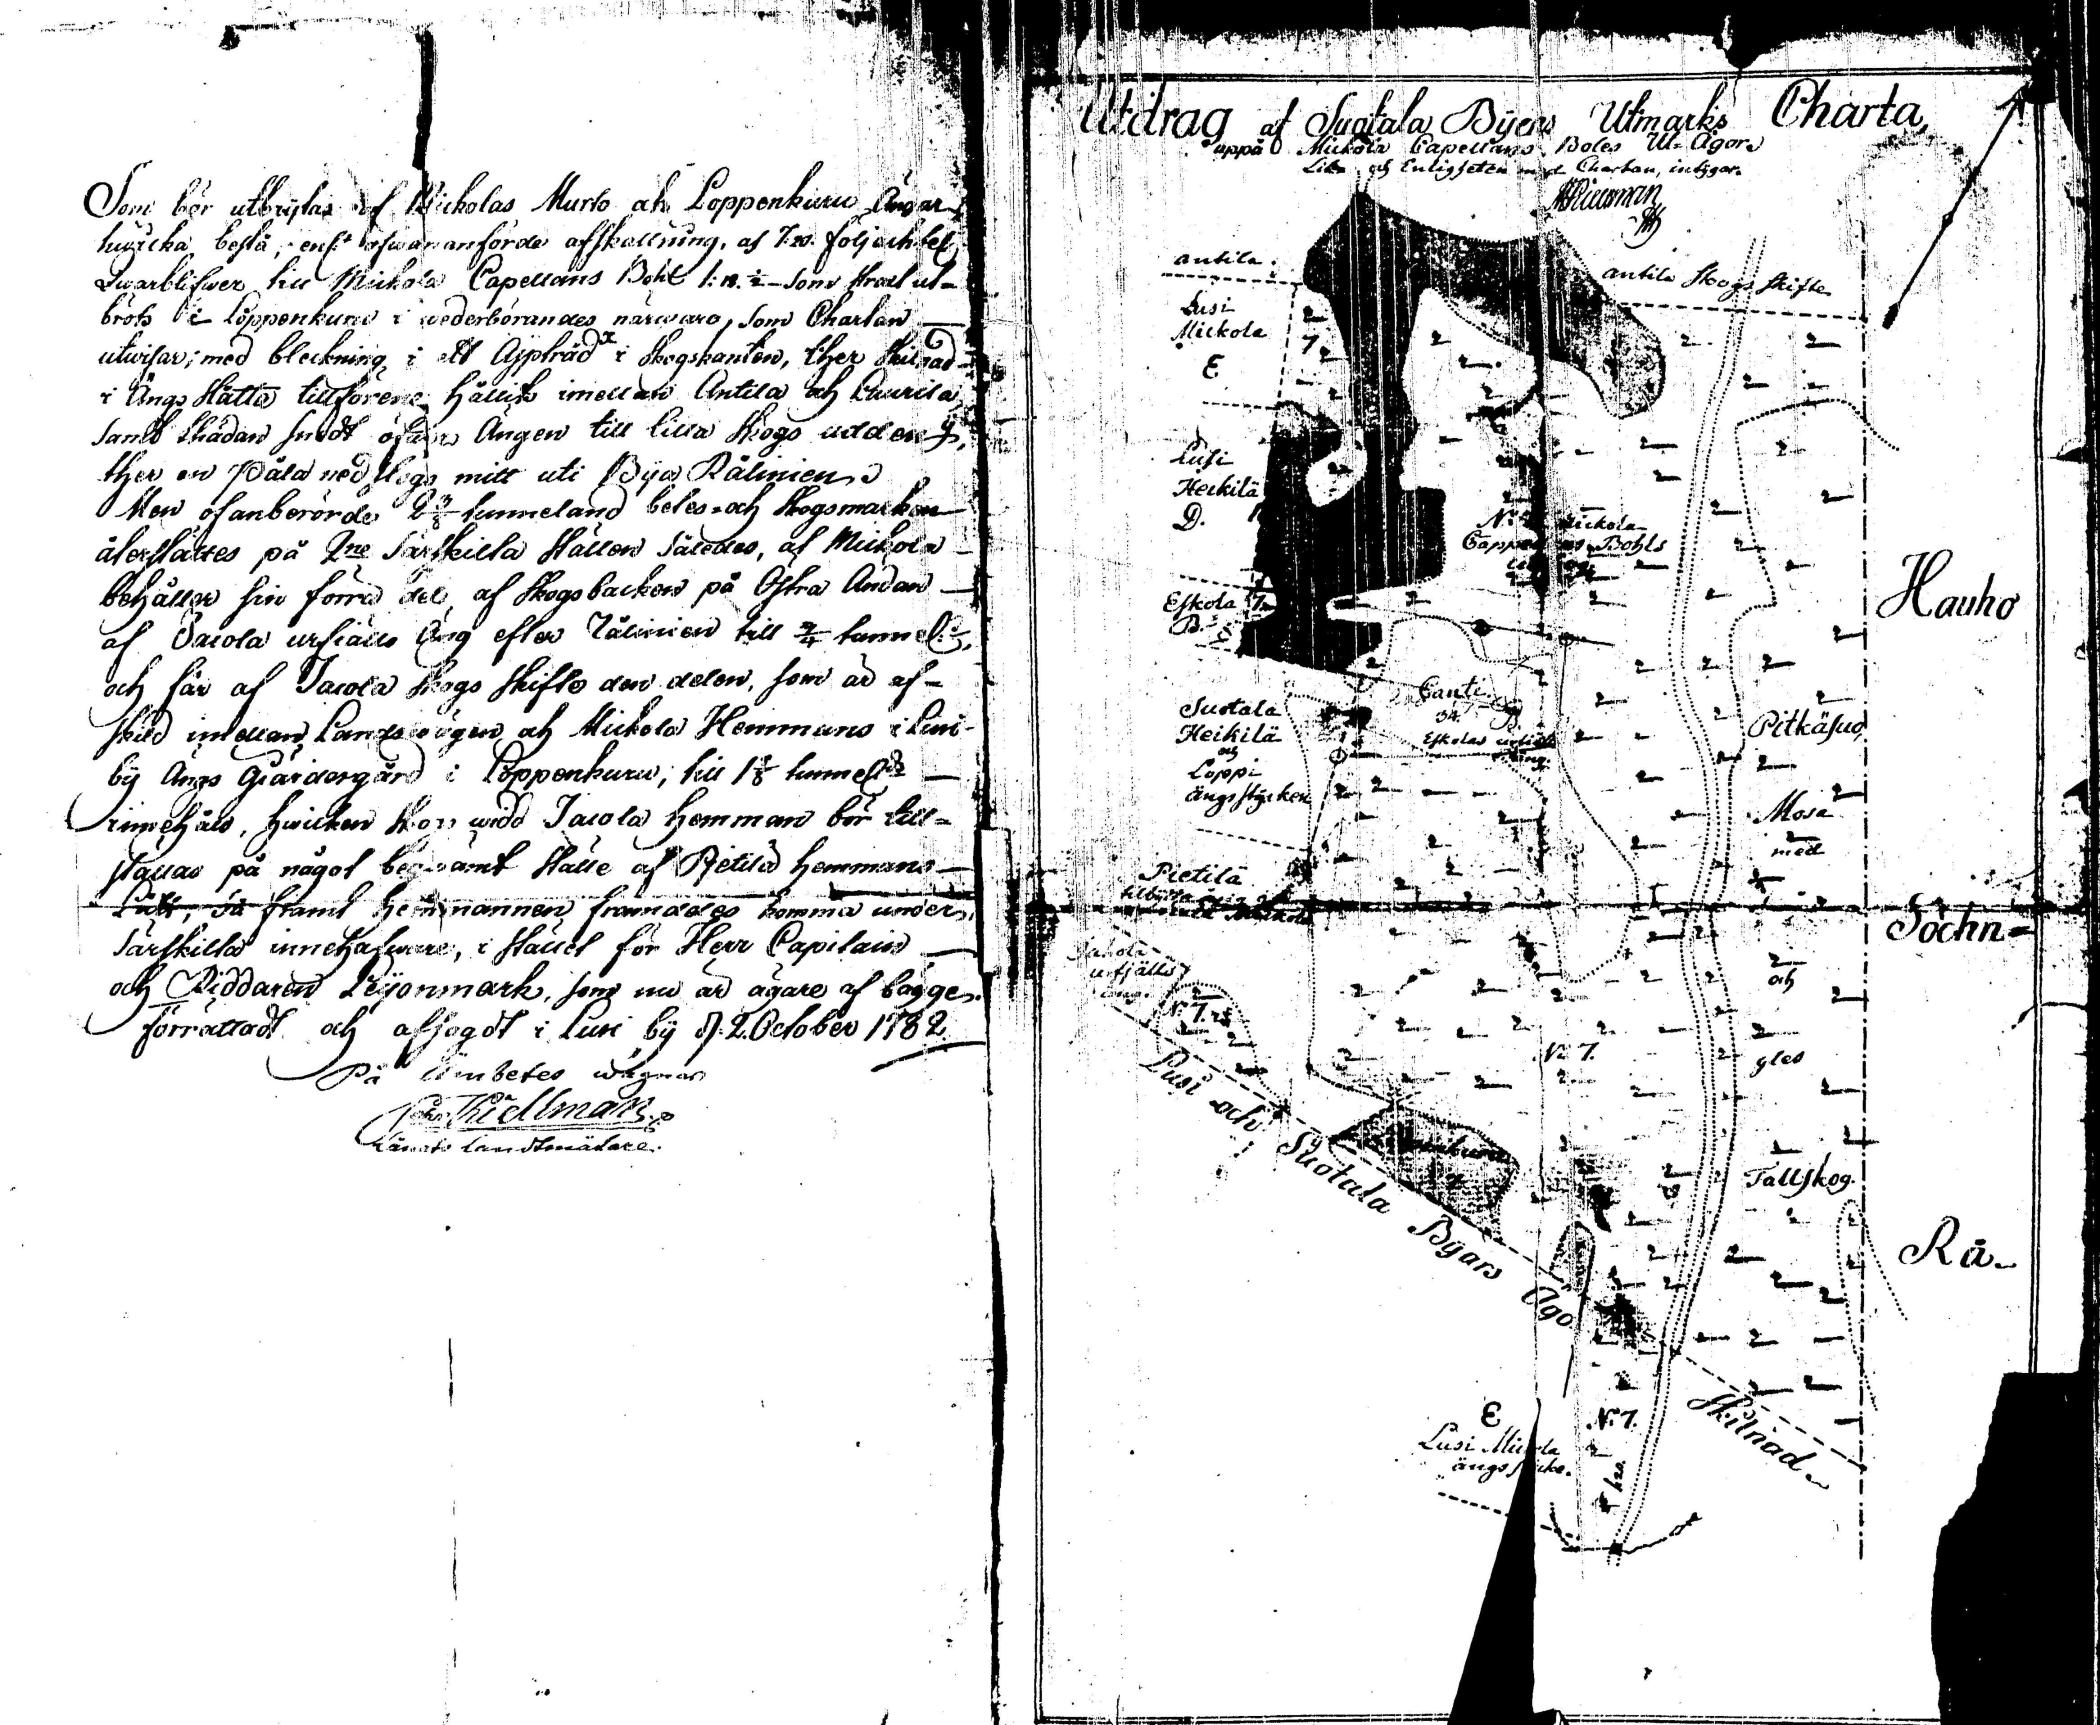 Som bör utbrytas af Mickolas Murto och Loppenkuru Ängar,
hwilcka bestå, enl:t ofwananförde afskattning, af 7:20. följachtel.
Qwarblifwer till Mickola Capellans Bohl 1: 18. ½ som skall ut-
bröts i Loppenkuru i wederbörandes närwaro, som Chartan
utwisar; med bleckning i ett Aspträd x i Skogskanten, ther Skilnad
i Ängs Slåtta tillförene hållits imellan Antila och Laurila
samt thädan snedt öfwer Ängen till lilla Skogs udden y,
ther en Påla nedslogs mitt uti Bya Rålinien.
Men ofanberörde tunneland betes- och Skogsmarken
återställes på 2ne särskilta ställen således, at Mickola
behåller sin förra del af Skogsbacken på Östra Andan
af Jacola urfjälls Äng efter Rålinien till ¾ tunnel:d,
och får af Jacola Skogs Skifte den delen, som är af-
skild imellan Landswägen och Mickola Hemmans i Lusi
by Ängs Giärdesgård i Loppenkuru, till 1 tunnel:d
innehåld, hwilcken Skog widd Jacola Hemman bör till-
ställas på något beqwämt ställe af Pietilä Hemmans
Lått, så framt Hemmannen framdeles komma under
särskilta innehafware, i stället för Herr Capitain
och Riddaren Leijonmark, som nu är ägare af bägge.
förrättadt och afsagdt i Lusi by d. 2. October 1782.
På Ämbetes wägnar
Kiellman
Länets Landtmätare.
Utdrag af Suotala Byens Utmarks Charta,
uppå Mickola Capellans Boles Ut-Ägor.
Lika och Enligheten med Chartan, intygar.
antila.
antila Skogs Skifte
Lusi
Mickola
E
7
Lusi
Heikilä
D.
N:o 7. Mickola
Cappellans Bohls
Hauho
Eskola
B.
Suotala
Heikilä
och
Loppi
ängsstycken
Eskolas urfiäls
äng.
Pitkäsuo
Mosa
med
Pietilä
Sochn-
Jacola
urfjälls
N:o 7.
och
N:o 7.
gles
Lusi och Suotala Byars Ägo Skilnad
Tallskog.
Rå-
E
Lusi Mickola
ängsstycke.
N:o 7.